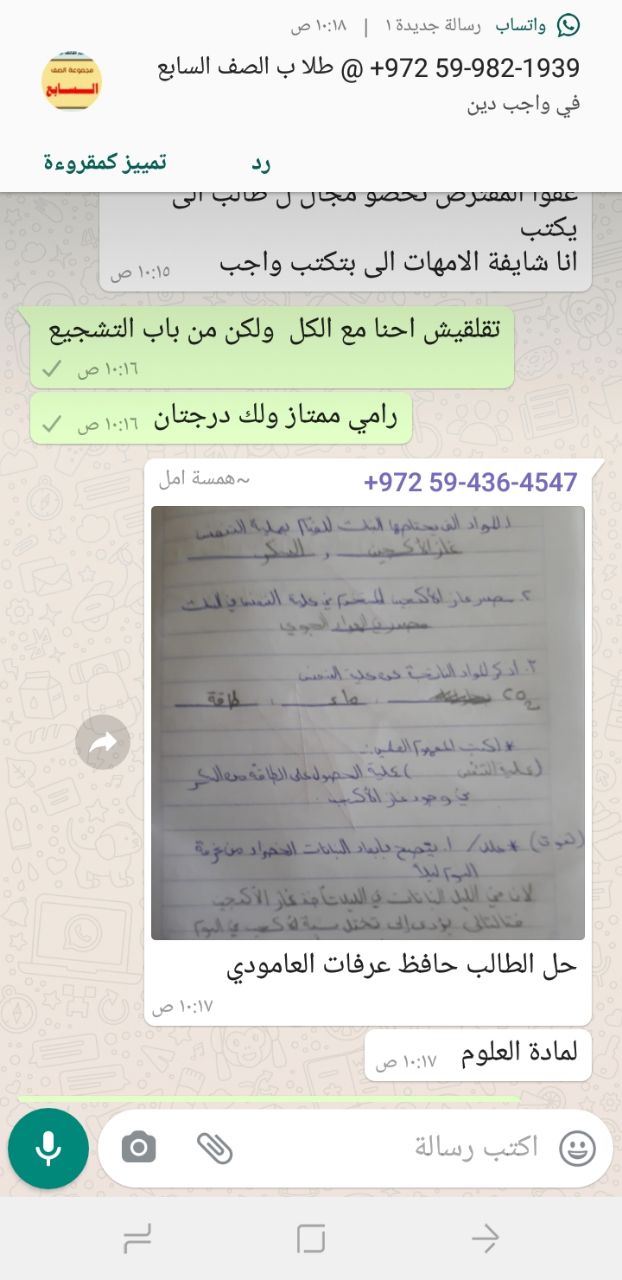 واتساب رسالة جديدة ١ | ١٠:١٨ ص
+972 59-982-1939 @ طلا ب الصف السابع
في واجب دين
مجموعة الصف
الـسـابع
رد
تمييز كمقروءة
عفوا المفترض تحضو مجال ل طالب الى
يكتب
انا شايفة الامهات الى بتكتب واجب
١٠:١٥ ص
تقلقيش احنا مع الكل ولكن من باب التشجيع
١٠:١٦ ص
رامي ممتاز ولك درجتان
١٠:١٦ ص
+972 59-436-4547
~همسة امل
١. المواد التي يحتاجها النبات للقيام بعملية التنفس
غاز الأكسجين و السكر
٢. مصدر غاز الأكسجين المستخدم في عملية التنفس في النبات
مصدره الهواء الجوي
٣. اذكر المواد الناتجة عن عملية التنفس
CO2 ، ماء ، طاقة
* اكتب المفهوم العلمي :-
(عملية التنفس) عملية الحصول على الطاقة من السكر
في وجود غاز الأكسجين .
* علل / ١. ينصح بإبعاد النباتات الخضراء من غرفة
النوم ليلاً
لان في الليل النباتات في البيت تأخذ غاز الأكسجين
فبالتالي يؤدي إلى تختل نسبة الأكسجين في النوم
حل الطالب حافظ عرفات العامودي
١٠:١٧ ص
لمادة العلوم
١٠:١٧ ص
اكتب رسالة